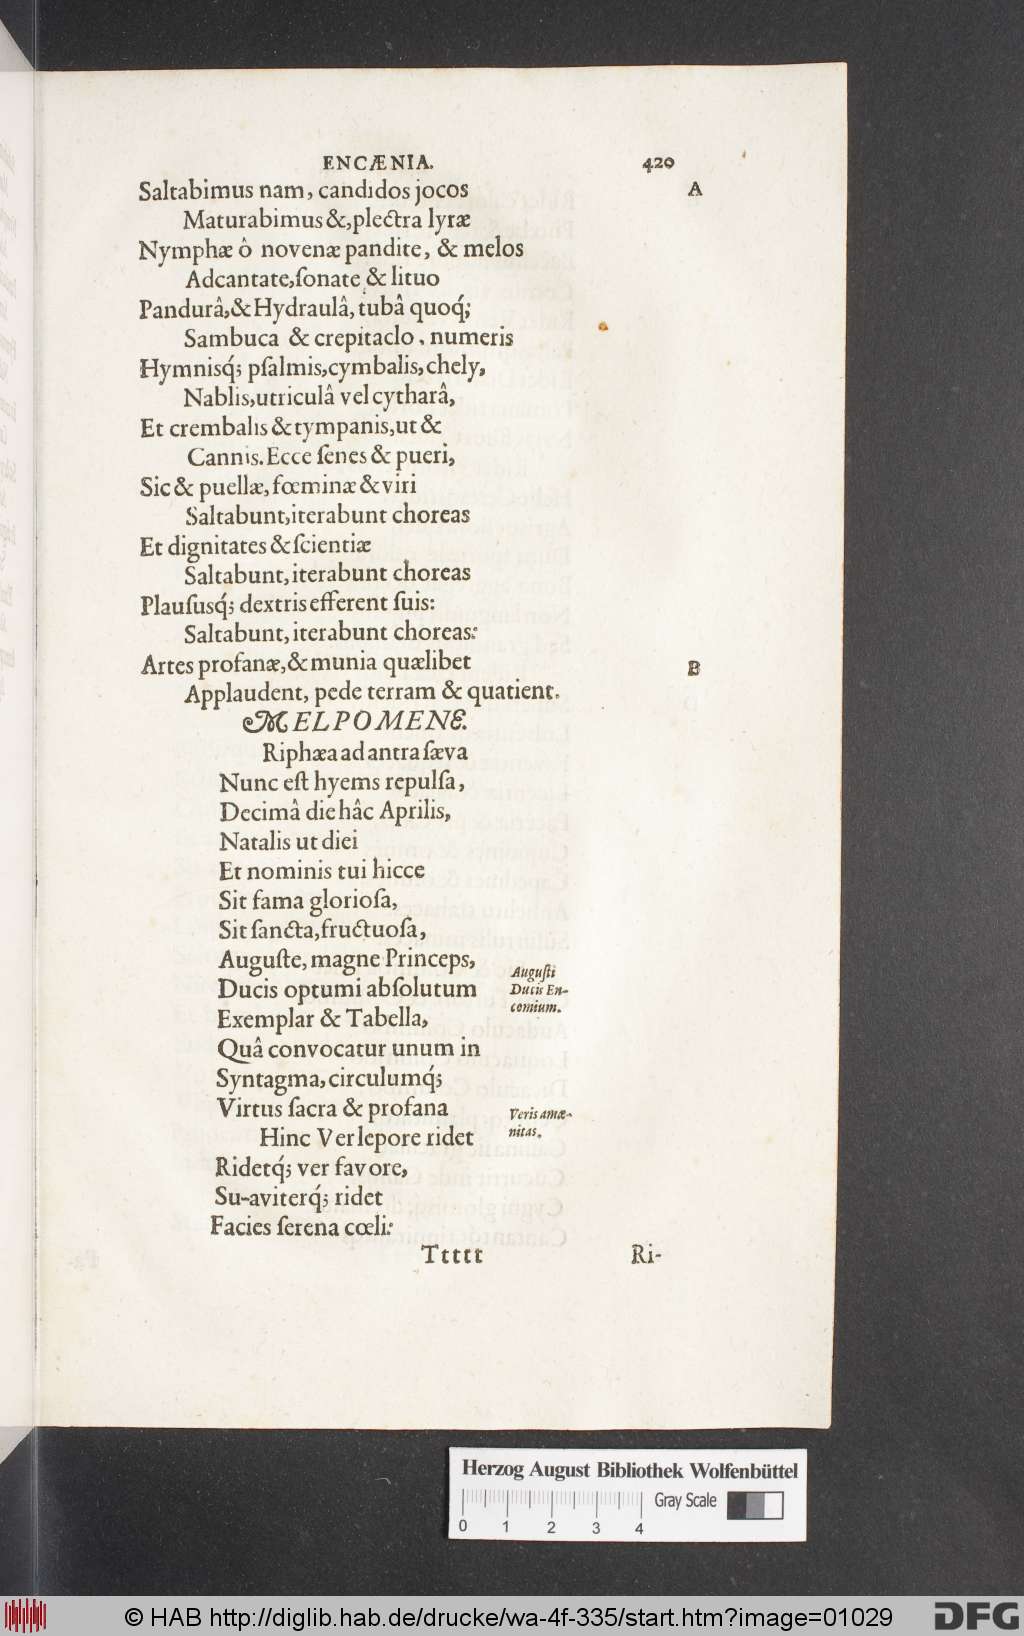 ENCÆNIA. 420
Saltabimus nam, candidos jocos A
Maturabimus &, plectra lyræ
Nymphæ ô novenæ pandite, & melos
Adcantate, ſonate & lituo
Pandurâ, & Hydraulâ, tubâ quoq́;
Sambuca & crepitaclo, numeris
Hymnisq́; pſalmis, cymbalis, chely,
Nablis, utriculâ vel cytharâ,
Et crembalis & tympanis, ut &
Cannis. Ecce ſenes & pueri,
Sic & puellæ, fœminæ & viri
Saltabunt, iterabunt choreas
Et dignitates & ſcientiæ
Saltabunt, iterabunt choreas
Plauſusq́; dextris efferent ſuis:
Saltabunt, iterabunt choreas:
Artes profanæ, & munia quælibet B
Applaudent, pede terram & quatient.
MELPOMENE.
Riphæa ad antra ſæva
Nunc eſt hyems repulſa,
Decimâ die hâc Aprilis,
Natalis ut diei
Et nominis tui hicce
Sit fama glorioſa,
Sit ſancta, fructuoſa,
Auguſte, magne Princeps,
Ducis optumi abſolutum
Exemplar & Tabella,
Quâ convocatur unum in
Syntagma, circulumq́;
Virtus ſacra & profana
Hinc Ver lepore ridet
Ridetq́; ver favore,
Su-aviterq́; ridet
Facies ſerena cœli:
Auguſti
Ducis En-
comium.
Veris amæ-
nitas.
Ttttt Ri-
Herzog August Bibliothek Wolfenbüttel
Gray Scale
0 1 2 3 4
© HAB http://diglib.hab.de/drucke/wa-4f-335/start.htm?image=01029
DFG